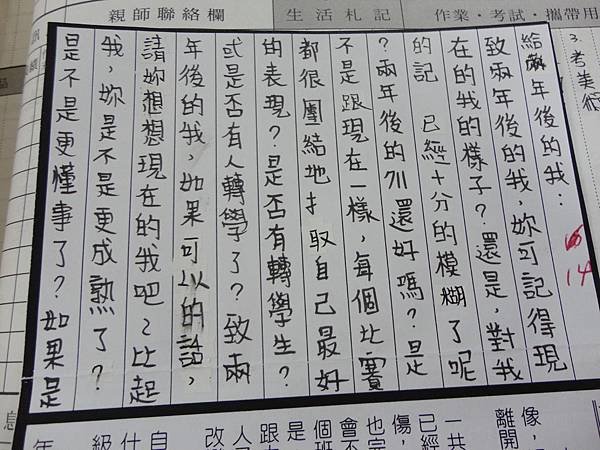 親師聯絡欄
生活札記
作業・考試・攜帶用
3.考美術
6/14
給兩年後的我：
致兩年後的我，妳可記得現
在的我的樣子？還是，對我
的記 已經十分的模糊了呢
？兩年後的711還好嗎？是
不是跟現在一樣，每個比賽
都很團結地扌取自己最好
的表現？是否有轉學生？
或是否有人轉學了？致兩
年後的我，如果可以的話，
請妳想想現在的我吧~比起
我，妳是不是更成熟了？
是不是更懂事了？如果是
像，
離開
一共
已經
傷，
也完
會不
個班
是
跟
人
改
自
什
級
年
息